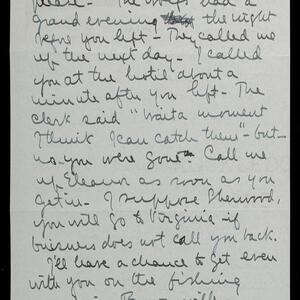 please - The Wolfs had a
grand evening the night
before you left - They called me
up the next day - I called
you at the hotel about a
minute after you left - The
clerk said "Wait a moment
I think I can catch them" - but -
no - you were gone - Call me
up Eleanor as soon as you
get in - I suppose Sherwood,
you will go to Virginia if
business does not call you back.
I'll have a chance to get even
with you on the fishing